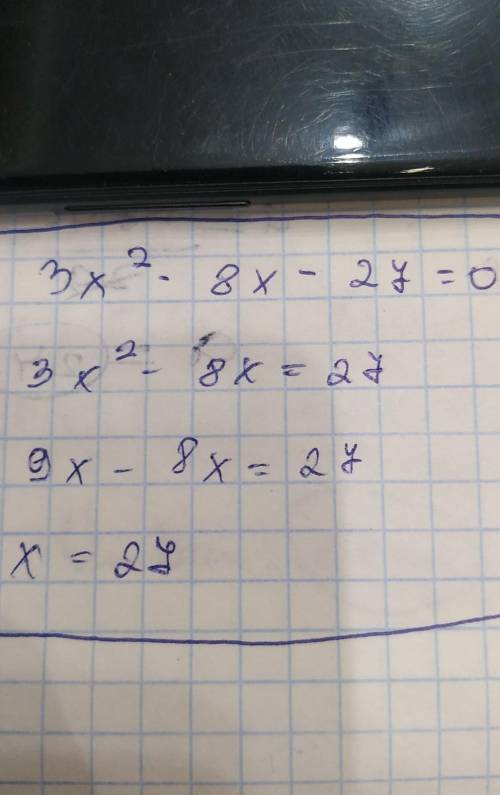 3x² - 8x - 27 = 0
3x² - 8x = 27
9x - 8x = 27
x = 27